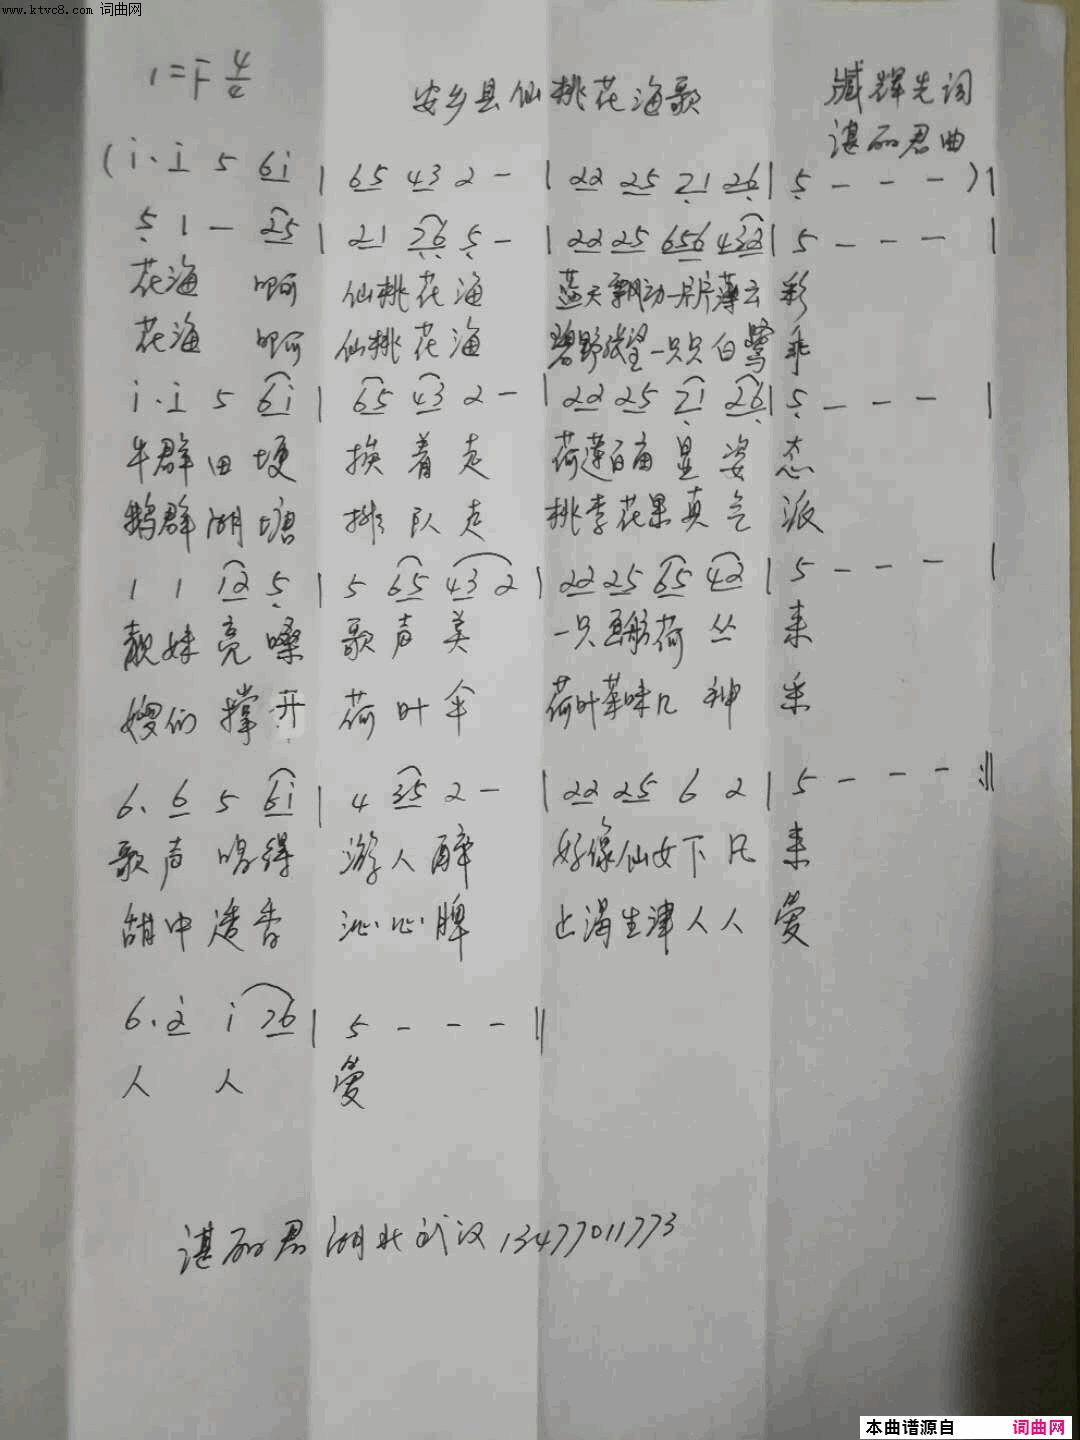 www.ktvc8.com 词曲网
1=F 4/4
安乡县仙桃花海歌
臧辉先词
谌丽君曲
(i. i 5 6i | 65 43 2 - | 22 25 21 26 | 5 - - - ) |
5 1 - 25 | 21 26 5 - | 22 25 656 432 | 5 - - - |
花海 啊 仙桃花海 蓝天飘动一片片薄云彩
花海 啊 仙桃花海 碧野张望一只只白鹭乖
i. i 5 6i | 65 43 2 - | 22 25 21 26 | 5 - - - |
牛群田埂 挨着走 荷莲百亩显姿态
鹅群湖塘 排队走 桃李花果真气派
1 1 12 5 | 5 65 43 2 | 22 25 65 42 | 5 - - - |
靓妹亮嗓 歌声美 一只画舫荷丛来
嫂们撑开 荷叶伞 荷叶菜味几神采
6. 6 5 6i | 4 35 2 - | 22 25 6 2 | 5 - - - :||
歌声唱得 游人醉 好像仙女下凡来
甜中透香 沁心脾 止渴生津人人爱
6. 2 i 26 | 5 - - - ||
人 人 爱
谌丽君 湖北武汉 13477011773
本曲谱源自 词曲网